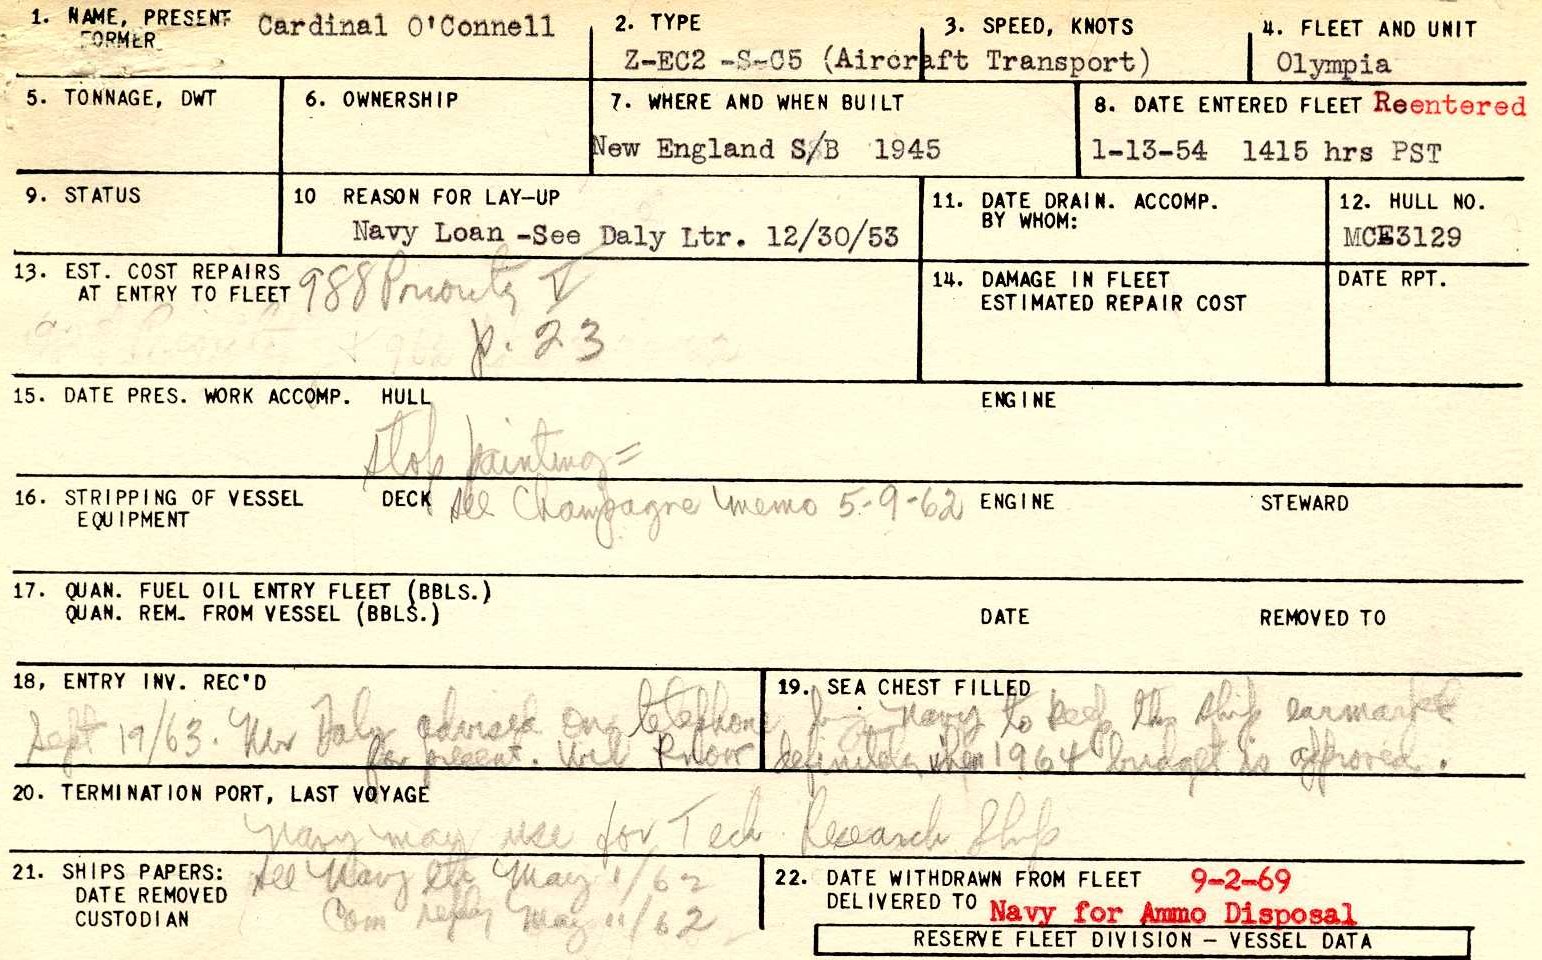 1. NAME, PRESENT Cardinal O'Connell
FORMER
2. TYPE
Z-EC2 -S-C5 (Aircraft Transport)
3. SPEED, KNOTS
4. FLEET AND UNIT
Olympia
5. TONNAGE, DWT
6. OWNERSHIP
7. WHERE AND WHEN BUILT
New England S/B 1945
8. DATE ENTERED FLEET Reentered
1-13-54 1415 hrs PST
9. STATUS
10 REASON FOR LAY-UP
Navy Loan -See Daly Ltr. 12/30/53
11. DATE DRAIN. ACCOMP.
BY WHOM:
12. HULL NO.
MCE3129
13. EST. COST REPAIRS
AT ENTRY TO FLEET 988 Priority V
p. 23
14. DAMAGE IN FLEET
ESTIMATED REPAIR COST
DATE RPT.
15. DATE PRES. WORK ACCOMP. HULL
ENGINE
Stop painting =
16. STRIPPING OF VESSEL DECK See Champagne memo 5-9-62 ENGINE STEWARD
EQUIPMENT
17. QUAN. FUEL OIL ENTRY FLEET (BBLS.)
QUAN. REM. FROM VESSEL (BBLS.) DATE REMOVED TO
18, ENTRY INV. REC'D
19. SEA CHEST FILLED
Sept 19/63. Mr Daly advised on telephone by Navy to keep this ship earmarked
for present. Will know definitely when 1964 budget is approved.
20. TERMINATION PORT, LAST VOYAGE
Navy may use for Tech. Research Ship
21. SHIPS PAPERS: See Navy ltr May 1/62
DATE REMOVED
CUSTODIAN Com reply May 11/62
22. DATE WITHDRAWN FROM FLEET 9-2-69
DELIVERED TO Navy for Ammo Disposal
RESERVE FLEET DIVISION - VESSEL DATA